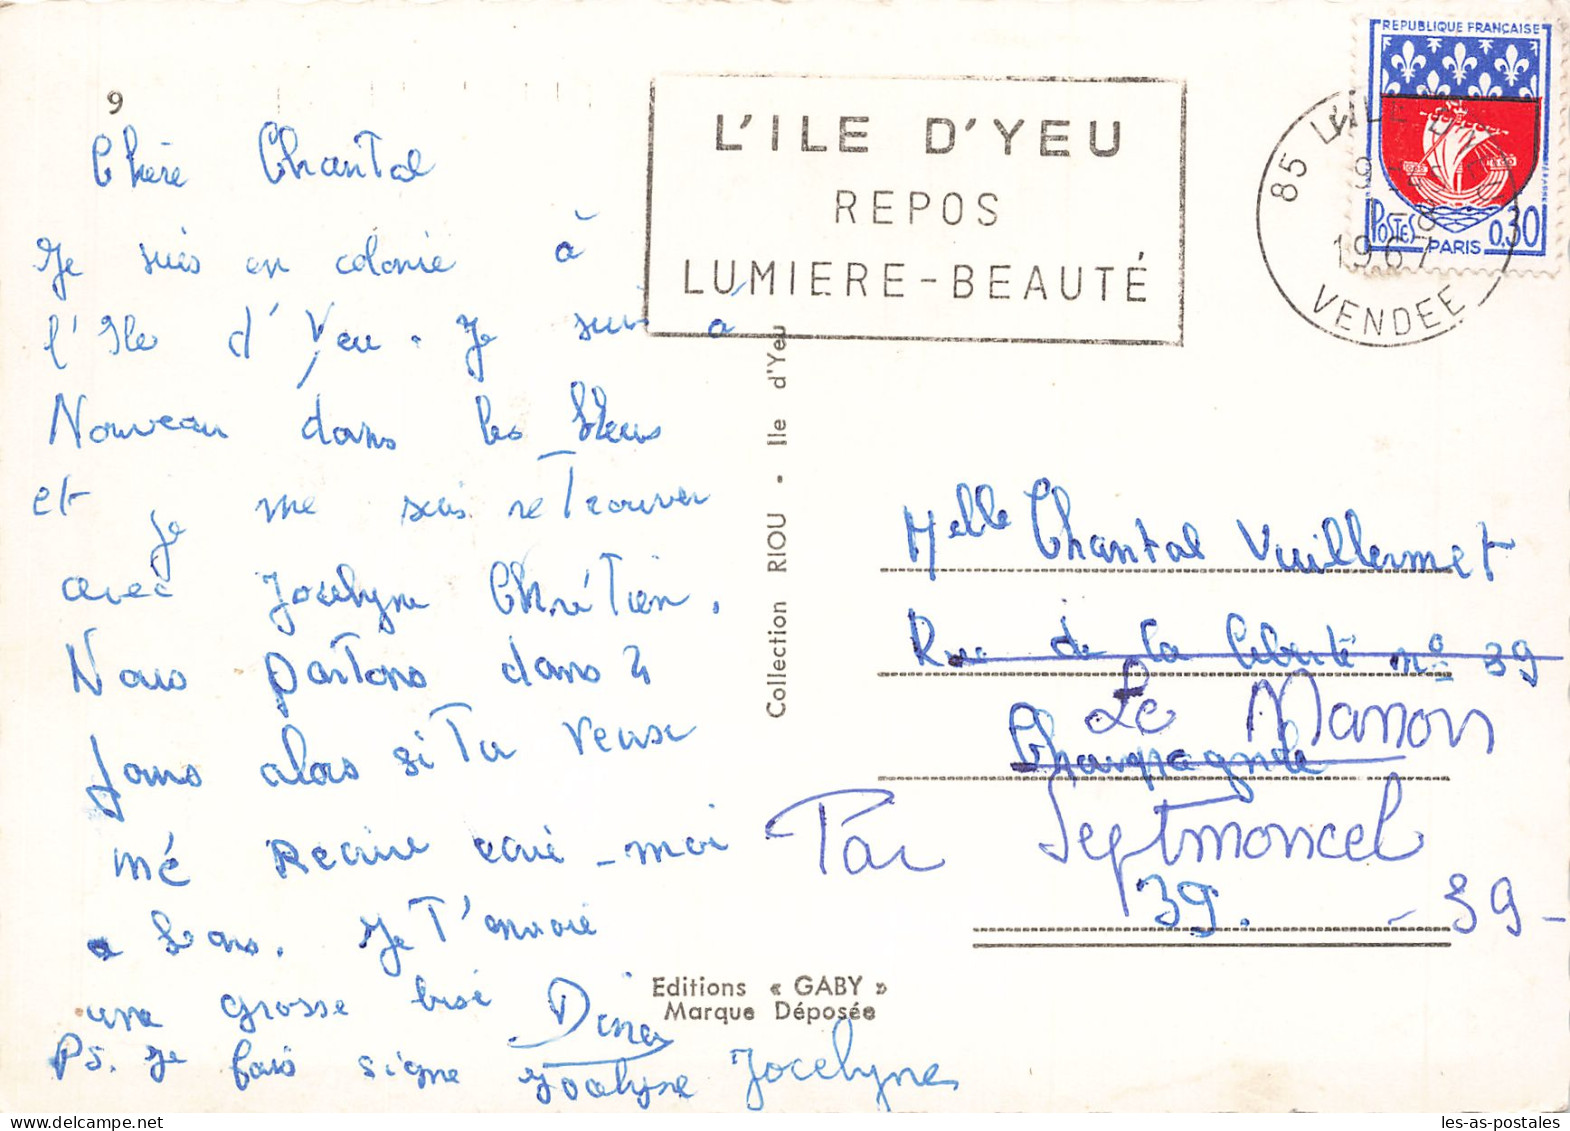 9
Chère Chantal
Je suis en colonie à
l'Ile d'Yeu. Je suis à
Nouveau dans les bleus
et je me suis retrouver
avec Jocelyne Chrétien.
Nous partons dans 4
jours alors si tu veux
mé Recrire ecrie-moi
a Je t'envoie
une grosse bise
PS. Je fais signe Jocelyne Jocelyne
L'ILE D'YEU
REPOS
LUMIERE-BEAUTÉ
85 L'ILE D'YEU
9
1967
VENDEE
REPUBLIQUE FRANÇAISE
POSTES PARIS 0,30
Collection RIOU - Ile d'Yeu
Melle Chantal Vuillermet
Rue de la liberté n° 39
Le Manon
Champagnole
Par Septmoncel
39. - 39 -
Editions « GABY »
Marque Déposée
les-as-postales